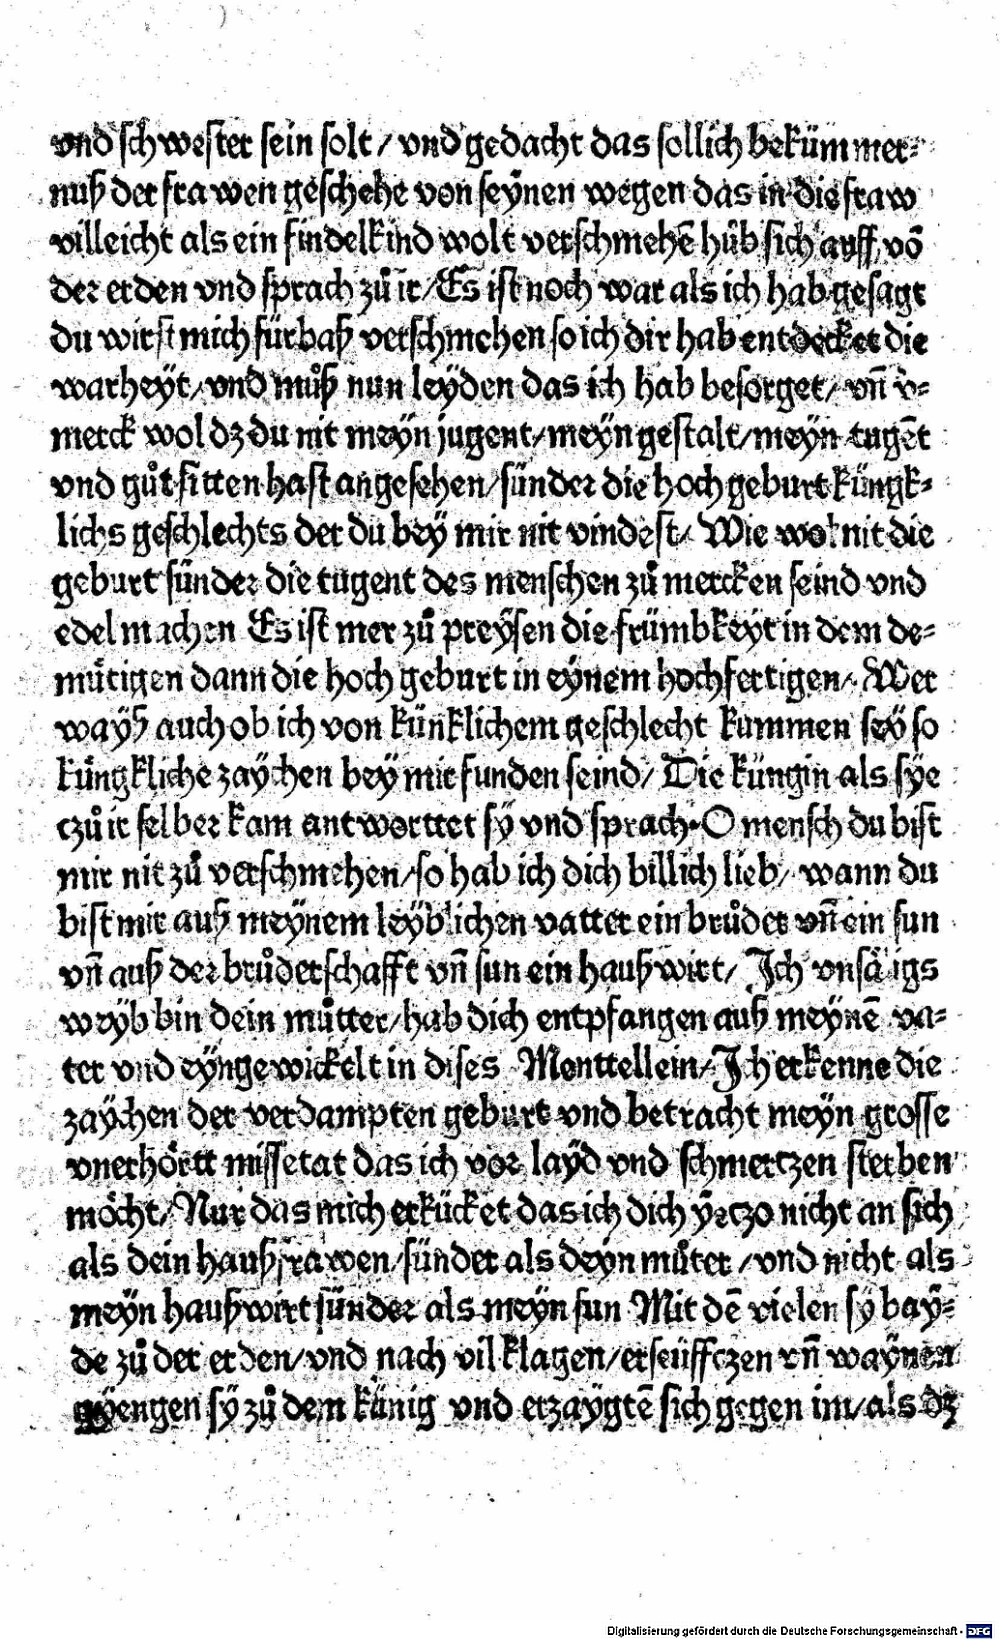 vnd schwester sein solt / vnd gedacht das sollich bekümmer⸗
nuß der frawen geschehe von seÿnen wegen das in die fraw
villeicht als ein findelkind wolt verschmehē hůb sich auff vō
der erden vnd sprach zů ir / Es ist noch war als ich hab gesagt
du wirst mich fürbaß verschmehen so ich dir hab entdecket die
warheyt / vnd můß nun leÿden das ich hab besorget / vn̄ v⸗
merck wol dz du nit meÿn jugent / meÿn gestalt / meÿn tugēt
vnd gůt sitten hast angesehen / sünder die hochgeburt küngk⸗
lichs geschlechts der du beÿ mir nit vindest / Wie wol nit die
geburt sünder die tugent des menschen zů mercken seind vnd
edel machen Es ist mer zů preÿsen die frümbkeyt in dem de⸗
můtigen dann die hoch geburt in eÿnem hochfertigen / Wer
wayß auch ob ich von künklichem geschlecht kummen seÿ so
küngkliche zaÿchen beÿ mir funden seind / Die küngin als sÿe
czů ir selber kam antworttet sÿ vnd sprach · O mensch du bist
mir nit zů verschmehen / so hab ich dich billich lieb / wann du
bist mir auß meÿnem leÿblichen vatter ein brůder vn̄ ein sun
vn̄ auß der brůderschafft vn̄ sun ein haußwirt / Jch vnsäligs
weÿb bin dein můtter / hab dich entpfangen auß meÿnē va⸗
ter vnd eÿngewickelt in dises Menttellein / Jch erkenne die
zaÿchen der verdampten geburt vnd betracht meÿn grosse
vnerhörtt missetat das ich vor laÿd vnd schmertzen sterben
möcht / Nur das mich erkücket das ich dich ÿeczo nicht an sich
als dein haußfrawen / sünder als deÿn můter / vnd nicht als
meÿn haußwirt sünder als meÿn sun Mit dē vielen sÿ baÿ⸗
de zů der erden / vnd nach vil klagen / erseüffczen vn̄ waÿnen
gÿengen sÿ zů dem künig vnd erzaygtē sich gegen im / als dz
Digitalisierung gefördert durch die Deutsche Forschungsgemeinschaft - DFG